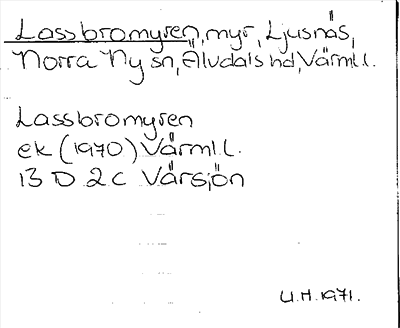 Lassbromyren, myr, Ljusnäs,
Norra Ny sn, Älvdals hd, Värml l.
Lassbromyren
ek (1970) Värml. L.
13 D 2 C Vårsjön
U.H. 1971.